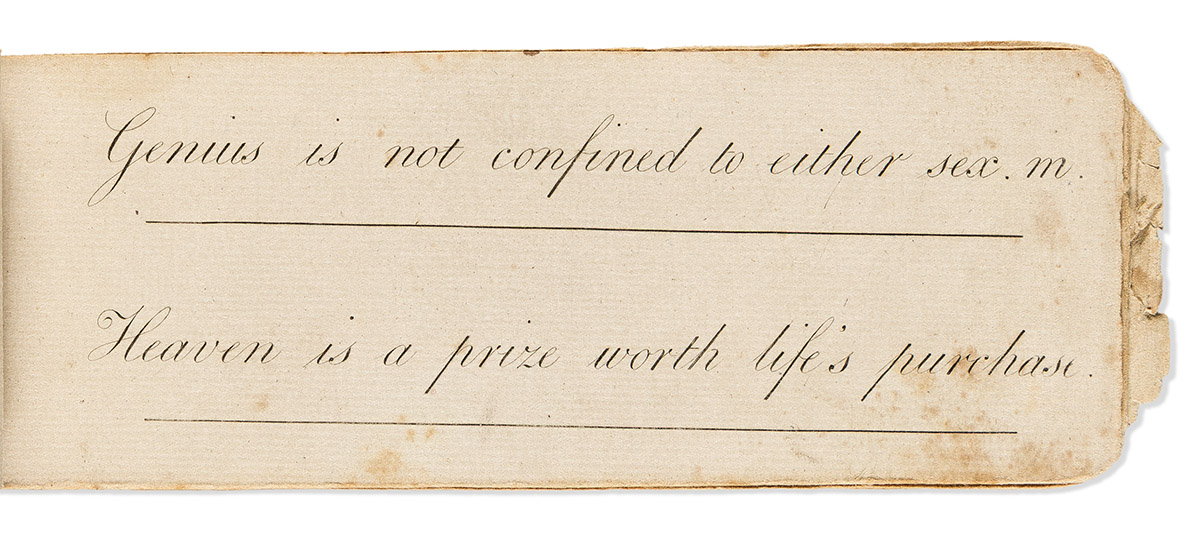 Genius is not confined to either sex. m.
Heaven is a prize worth life's purchase.